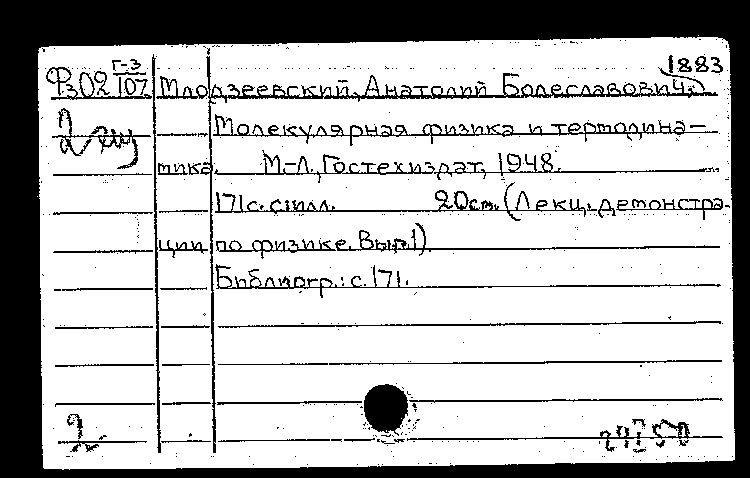 Г-3 1883
Ф302 107 Млодзеевский, Анатолий Болеславович.
Молекулярная физика и термодина-
мика. М.-Л., Гостехиздат, 1948.
171с. с илл. 20см. (Лекц. демонстра-
ции по физике. Вып. 1)
Библиогр.: с. 171.
2